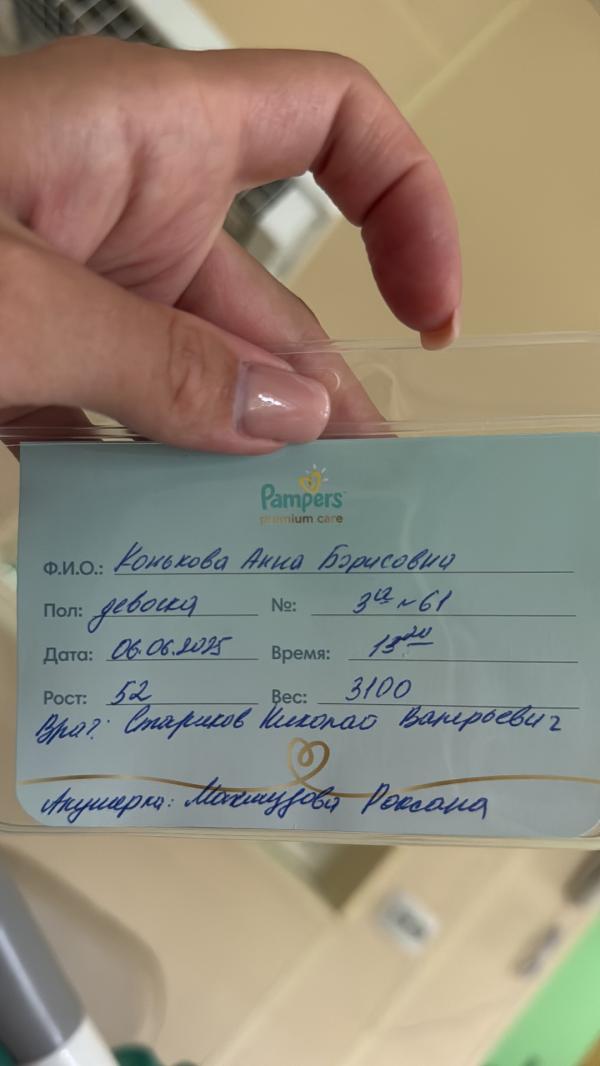 Pampers
premium care
Ф.И.О.: Конькова Анна Борисовна
Пол: девочка №: 3 ~ 61
Дата: 06.06.2025 Время:
Рост: 52 Вес: 3100
Врач: Стариков Николай Валерьевич
Акушерка: Махмудова Роксана